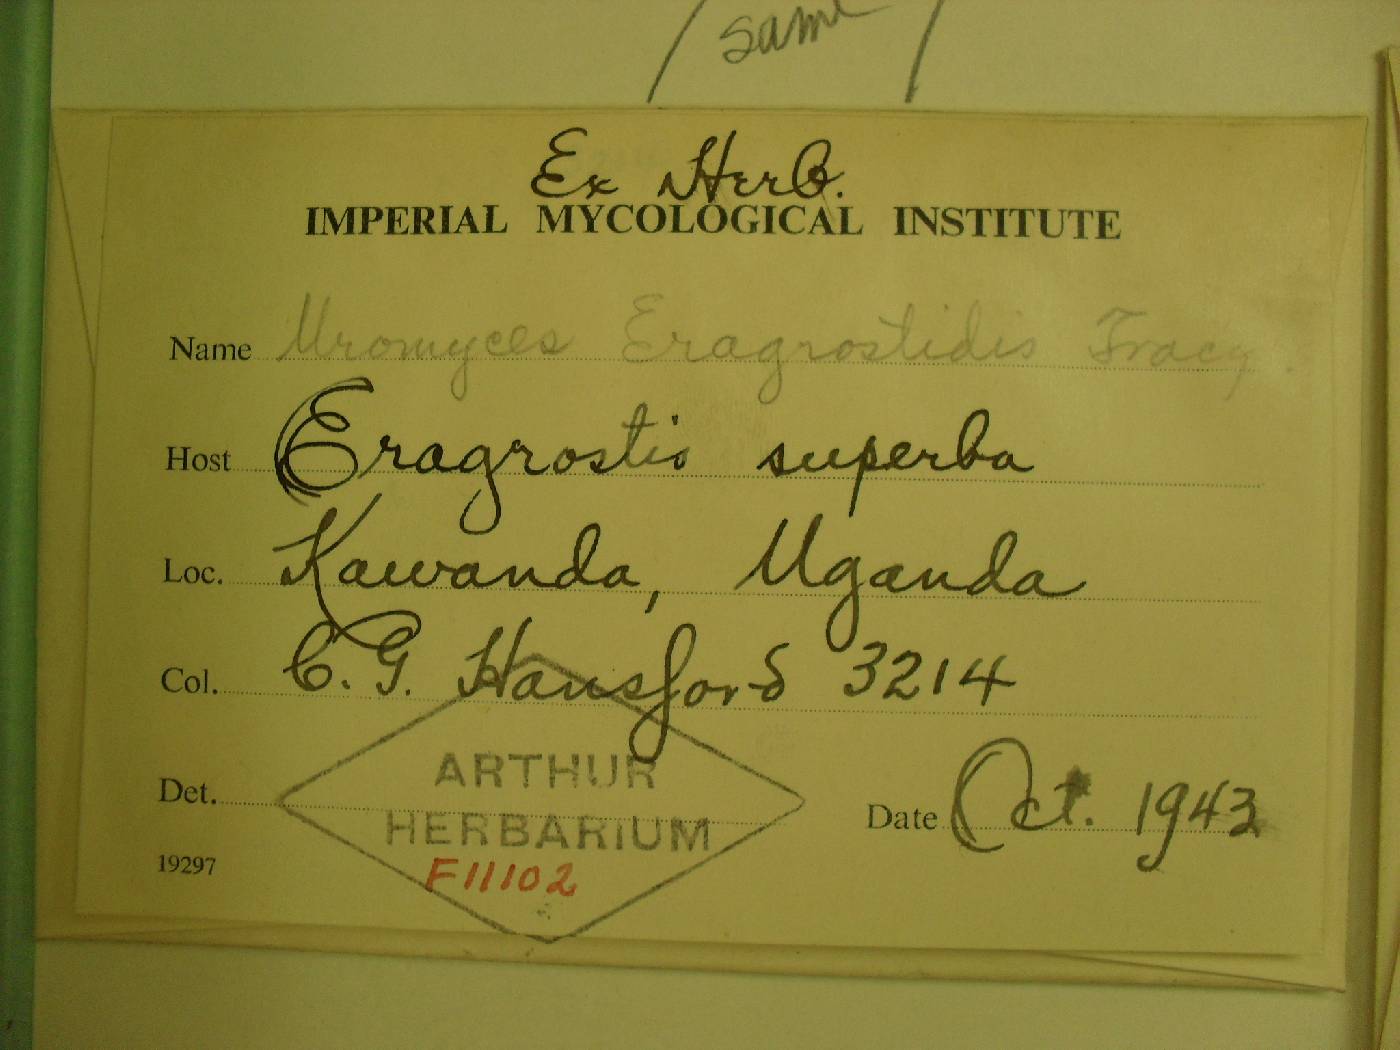 same
Ex Herb.
IMPERIAL MYCOLOGICAL INSTITUTE
Name Uromyces Eragrostidis Tracy.
Host Eragrostis superba
Loc. Kawanda, Uganda
Col. C. G. Hansford 3214
ARTHUR
Det.
HERBARIUM
Date Oct. 1943
19297
F11102